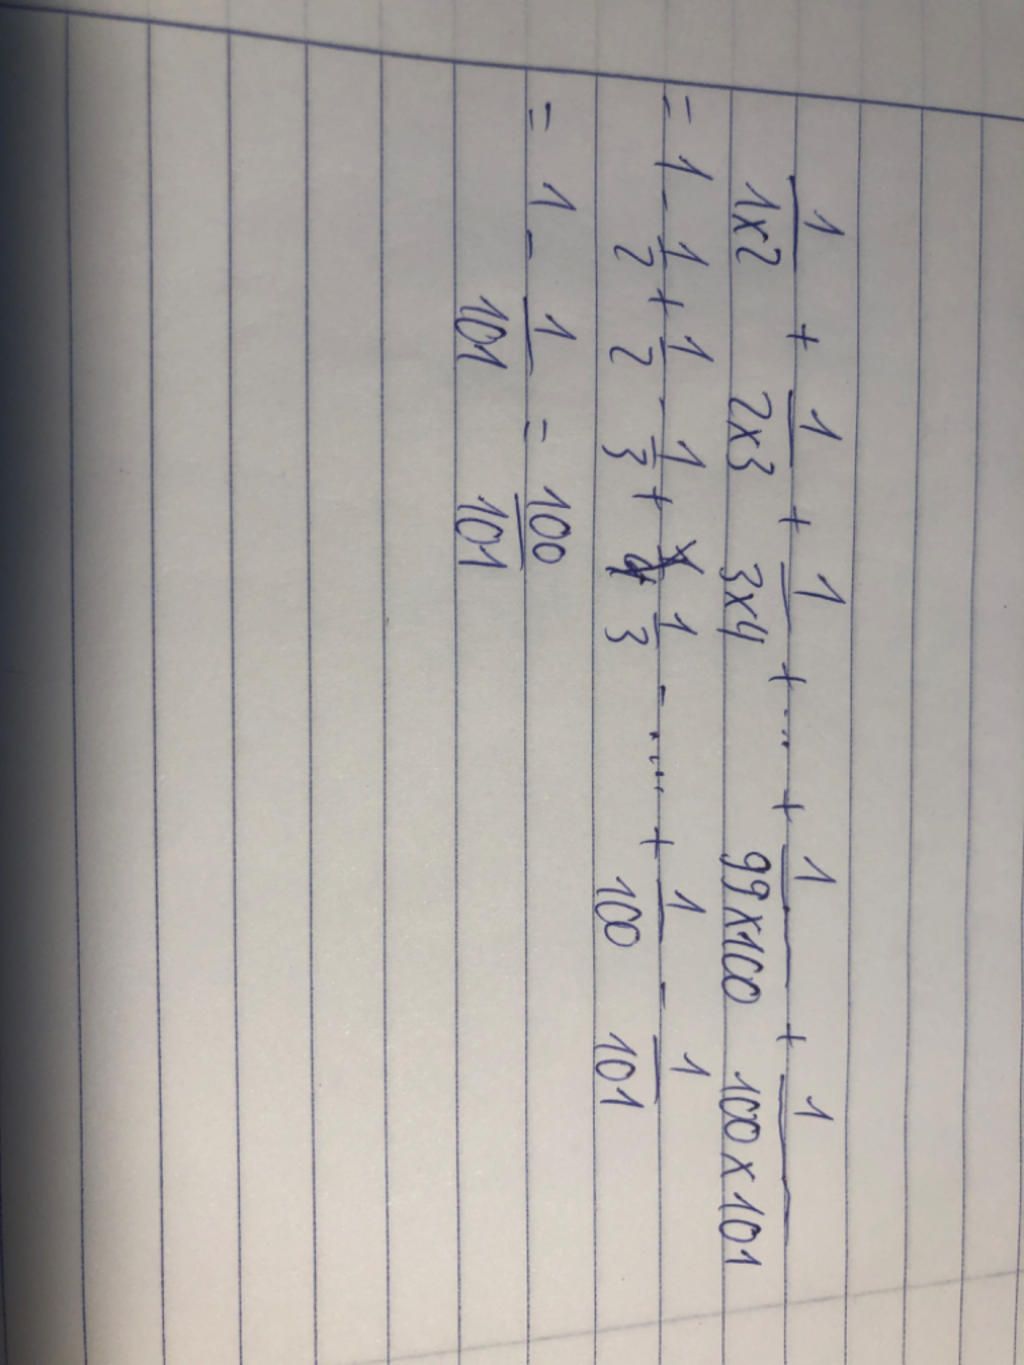 1/1x2 + 1/2x3 + 1/3x4 + ... + 1/99x100 + 1/100x101
= 1 - 1/2 + 1/2 - 1/3 + 1/3 - .... + 1/100 - 1/101
= 1 - 1/101 = 100/101